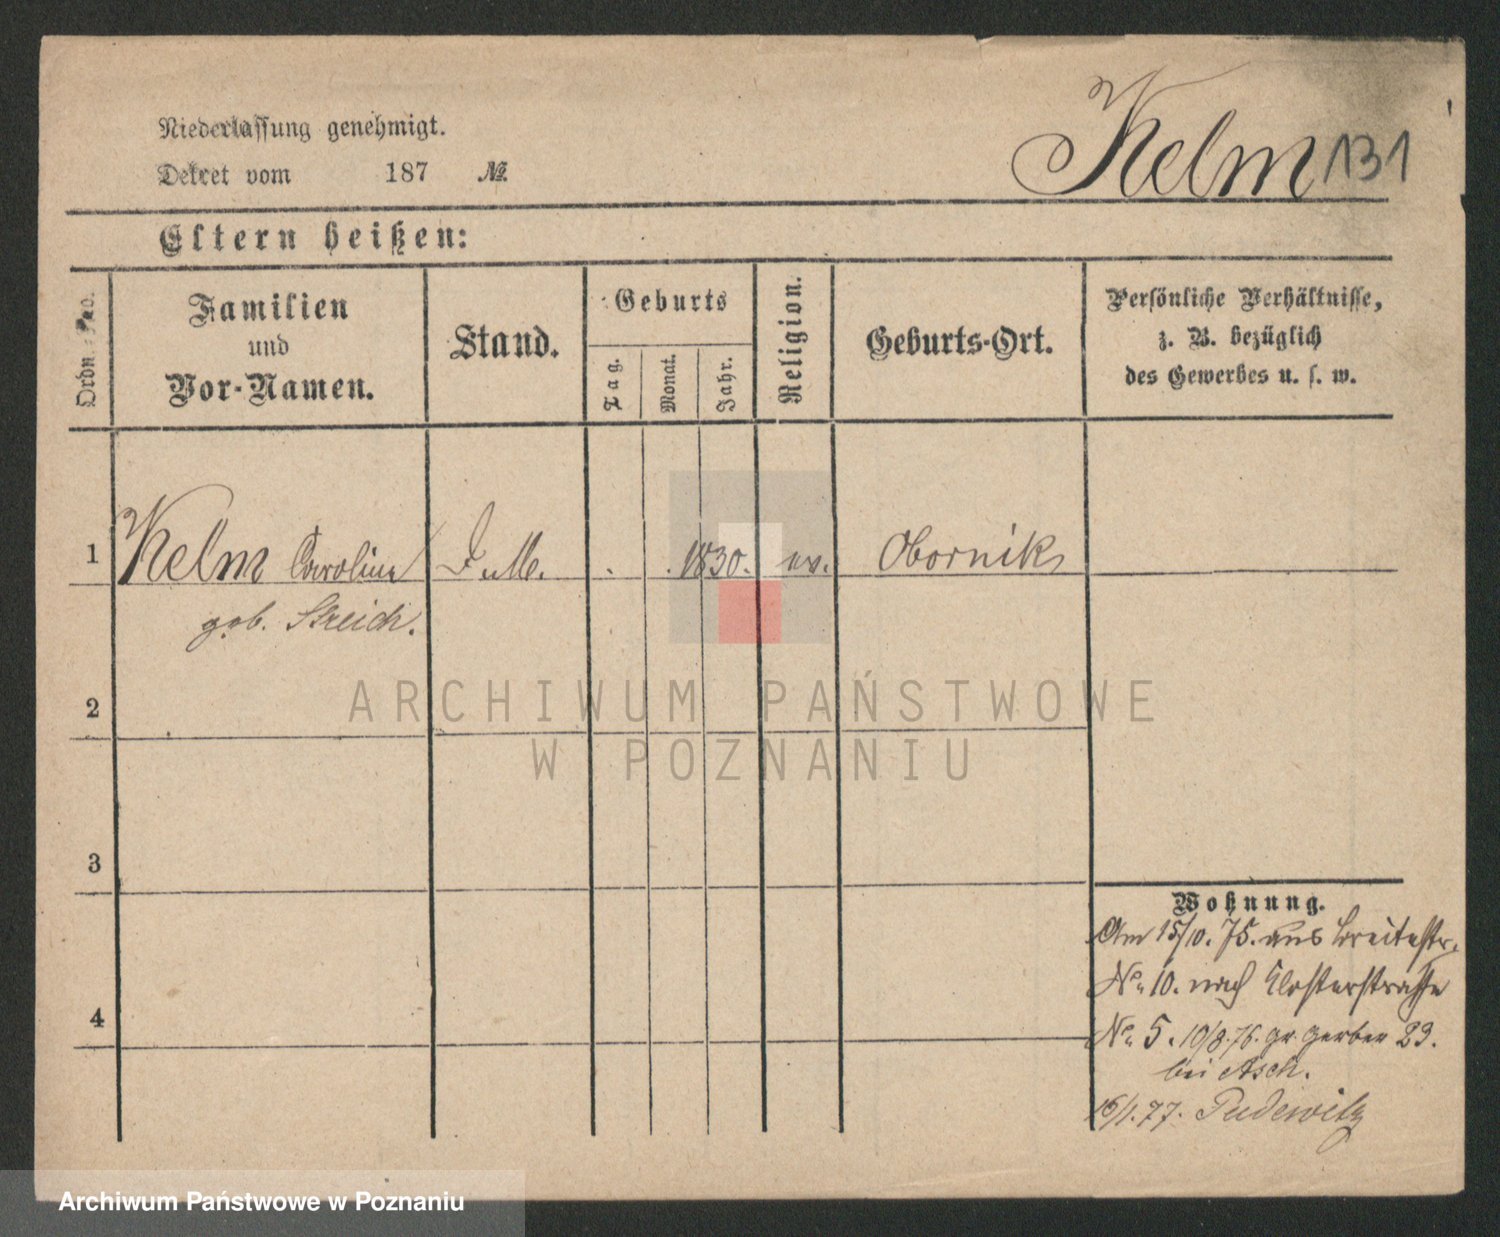 Niederlassung genehmigt.
Dekret vom 187 №
Kelm 131
Eltern heißen:
Ordn.-No.
Familien
und
Vor-Namen.
Stand.
Geburts
Tag.
Monat.
Jahr.
Religion.
Geburts-Ort.
Persönliche Verhältnisse,
z. B. bezüglich
des Gewerbes u. s. w.
1 Kelm Caroline . . 1830. ev. Obornik
geb. Streich.
2
3
4
Wohnung.
Am 15/10. 75. aus Breitestr.
No 10. nach Klosterstrasse
No 5. 10/8.76. gr. Gerber 29.
bei Asch.
16/1.77. Pudewitz
ARCHIWUM PAŃSTWOWE
W POZNANIU
Archiwum Państwowe w Poznaniu